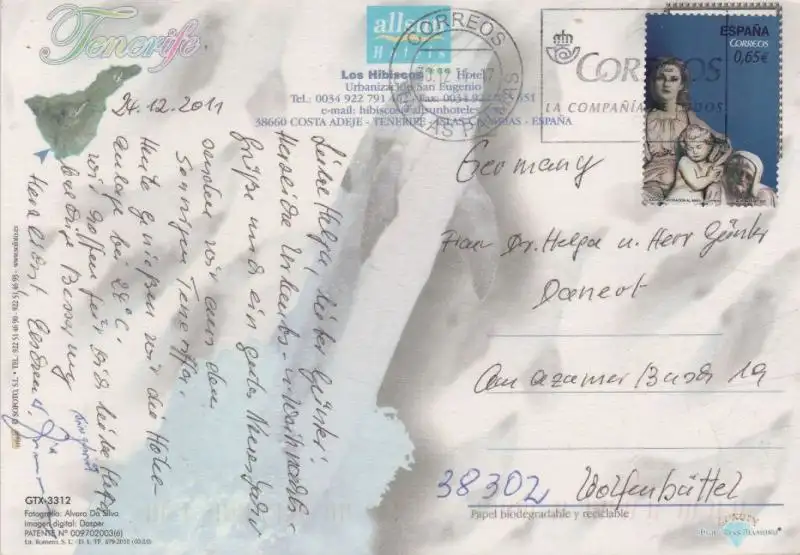 Tenerife
allsun
Hotels
Los Hibiscos Hotel
Urbanización San Eugenio
Tel.: 0034 922 791
e-mail: hibiscos@allsunhotels.com
38660 COSTA ADEJE - TENERIFE - ISLAS CANARIAS - ESPAÑA
CORREOS
LAS PALMAS
CORREOS
LA COMPAÑÍA DE TODOS
ESPAÑA
CORREOS
0,65€
24.12.2011
Liebe Helga, lieber Günter!
Herzliche Urlaubs- u. Weihnachts-
grüße und ein gutes Neues Jahr
senden wir aus dem
sonnigen Teneriffa.
Heute genießen wir die Hotel-
anlage bei 28°C.
Wir hoffen für Dich liebe Helga
weitere Besserung
Herzlichst,
Germany
Frau Dr. Helga u. Herr Günter
Danert
Am Atzumer Busch 19
38302 Wolfenbüttel
GTX-3312
Fotografía: Alvaro Da Silva
Imagen digital: Dasper
PATENTE Nº 009702003(6)
Papel biodegradable y reciclable